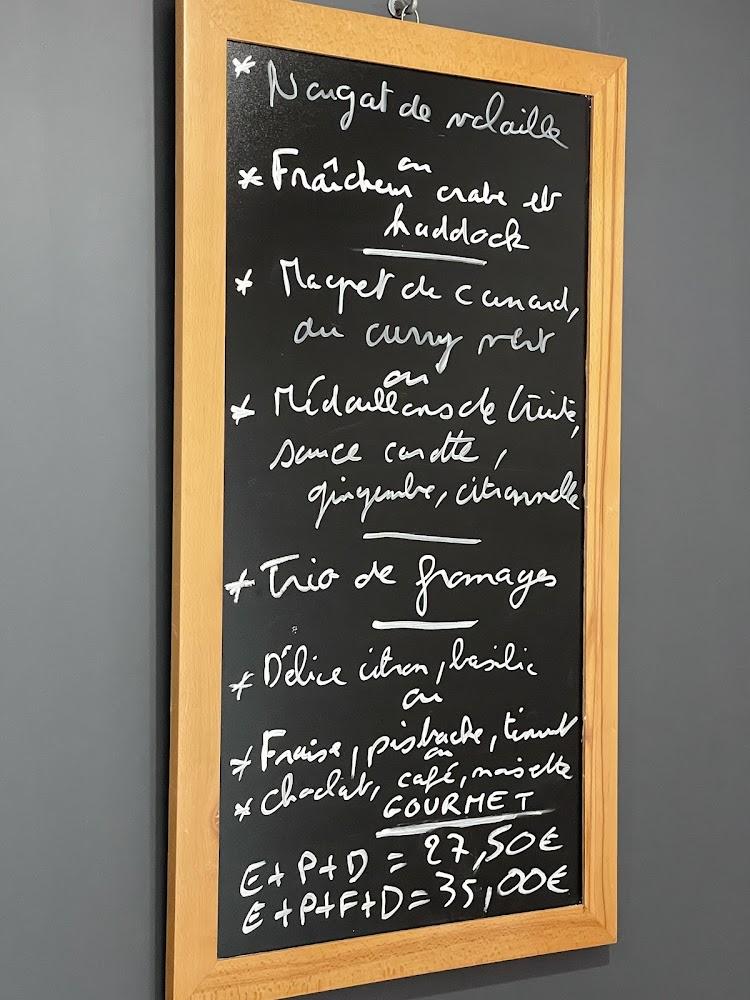 * Nougat de volaille
ou
* Fraîcheur crabe et
haddock
* Magret de canard,
au curry vert
ou
* Médaillons de truite,
sauce carotte,
gingembre, citronnelle
* Trio de fromages
* Délice citron, basilic
ou
* Fraise, pistache,
ou
* Chocolat, café, noisette
GOURMET
E+P+D = 27,50€
E+P+F+D = 35,00€